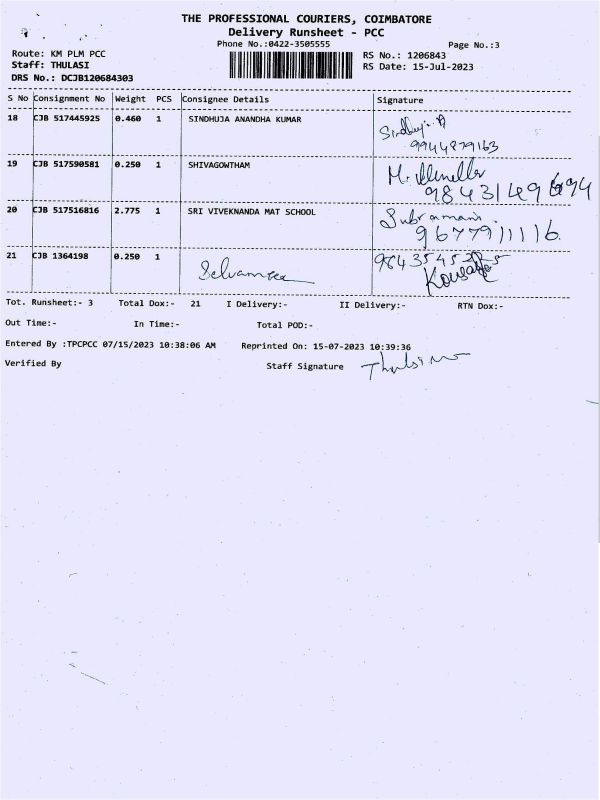 THE PROFESSIONAL COURIERS, COIMBATORE
Delivery Runsheet - PCC
Phone No.:0422-3505555 Page No.:3
Route: KM PLM PCC RS No.: 1206843
Staff: THULASI RS Date: 15-Jul-2023
DRS No.: DCJB120684303
S No Consignment No Weight PCS Consignee Details Signature
18 CJB 517445925 0.460 1 SINDHUJA ANANDHA KUMAR Sindhuja A
9944879163
19 CJB 517590581 0.250 1 SHIVAGOWTHAM
20 CJB 517516816 2.775 1 SRI VIVEKNANDA MAT SCHOOL Subramani
9677911116
21 CJB 1364198 0.250 1
Tot. Runsheet:- 3 Total Dox:- 21 I Delivery:- II Delivery:- RTN Dox:-
Out Time:- In Time:- Total POD:-
Entered By :TPCPCC 07/15/2023 10:38:06 AM Reprinted On: 15-07-2023 10:39:36
Verified By Staff Signature